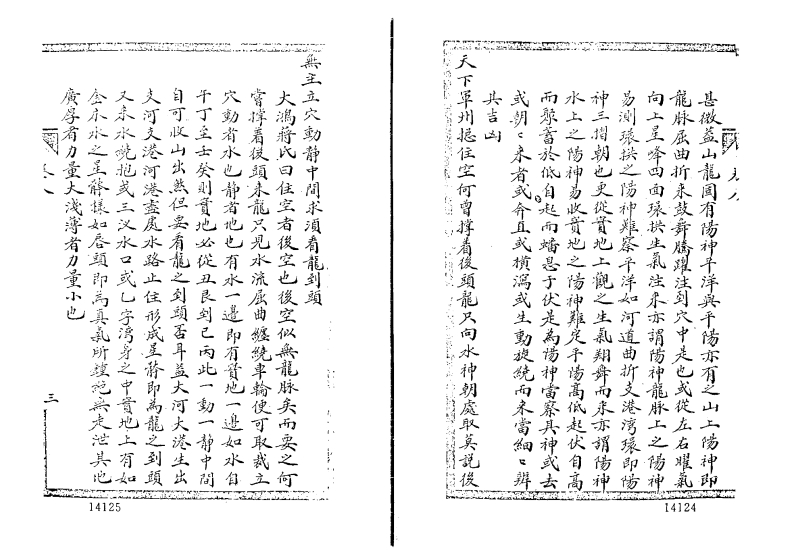 甚微蓋山龍固有陽神平洋與平陽亦有之山上陽神即
龍脉屈曲折来鼓舞騰躍注到穴中是也或從左右曜氣
向上呈峰四面環拱生氣注来亦謂陽神龍脉上之陽神
易測環拱之陽神難察平洋如河道曲折支港湾環即陽
神三摺朝也更從實地上觀之生氣翔舞而来亦謂陽神
水上之陽神易收實地之陽神難定平陽高低起伏自高
而聚蓄於低自起而蟠息于伏是為陽神當察其神或去
或朝〻来者或奔直或横瀉或生動旋繞而来當細〻辨
其吉凶
天下軍州揔住空何曾撑着後頭龍只向水神朝處取莫說後
卷八
14124
無主立穴動静中間求須看龍到頭
大鴻蔣氏曰住空者後空也後空似無龍脉矣而要之何
嘗撑着後頭来龍只見水流屈曲纏繞車輪便可取裁立
穴動者水也静者地也有水一邊即有實地一邊如水自
午丁至壬癸則實地必從丑艮到巳丙此一動一静中間
自可收山出煞但要看龍之到頭否耳蓋大河大港生出
支河支港河港盡處水路止住形成星體即為龍之到頭
又来水兜抱或三汊水口或乙字湾身之中實地上有如
金水木之星體樣如唇頭即為真氣所鐘純無走泄其他
廣厚者力量大淺薄者力量小也
卷八
三
14125